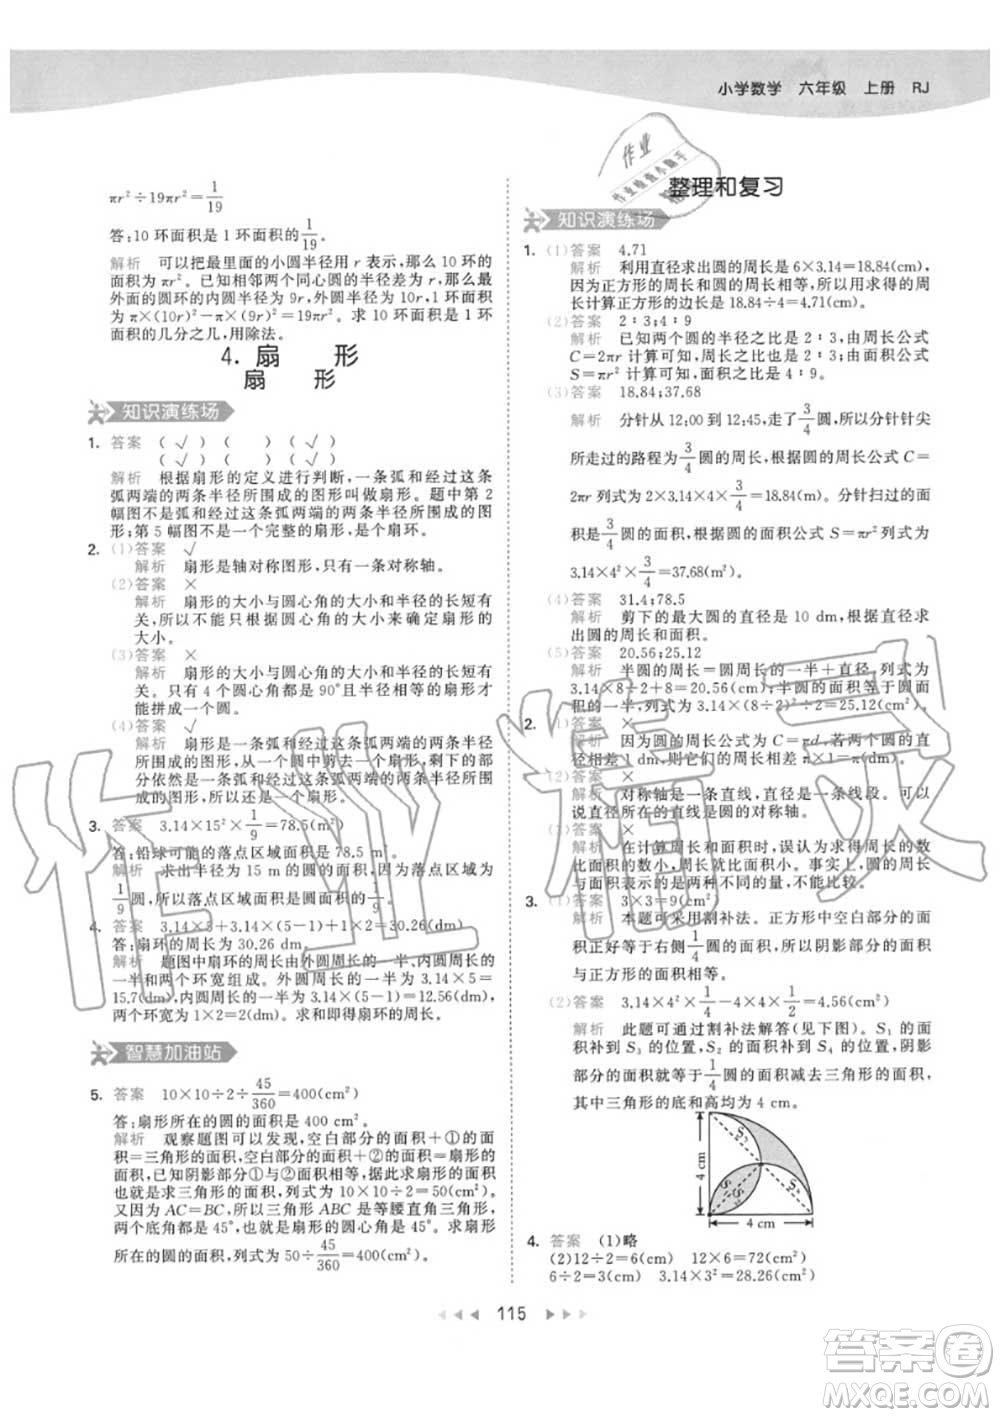 小学数学 六年级 上册 RJ
πr²÷19πr²=1/19
答:10 环面积是 1 环面积的1/19。
解析 可以把最里面的小圆半径用 r 表示,那么 10 环半径是 10r。已知相邻两个同心圆的半径差为 r,那么最外面的圆环的内圆半径为 9r,外圆半径为 10r,1 环面积为
π×(10r)²-π×(9r)²=19πr²。求 10 环面积是 1 环面积的几分之几,用除法。
4. 扇 形
扇 形
知识演练场
1. 答案 (√)( )(√)
(√)( )(√)
解析 根据扇形的定义进行判断,一条弧和经过这条
弧两端的两条半径所围成的图形叫做扇形。题中第 2
幅图不是一条弧和经过这条弧两端的两条半径所围成的图
形;第 5 幅图不是一个完整的扇形,是个扇环。
2. (1)答案 √
解析 扇形是轴对称图形,只有一条对称轴。
(2)答案 ×
解析 扇形的大小与圆心角的大小和半径的长短有
关,不能只根据圆心角的大小来确定扇形的
大小。
(3)答案 ×
解析 扇形的大小与圆心角的大小和半径的长短有
关。只有 4 个圆心角都是 90°且半径相等的扇形才能
拼成一个圆。
(4)答案 ×
解析 扇形是一条弧和经过这条弧两端的两条半径所
围成的图形。从圆中剪去一个扇形,剩下的
部分依然是一条弧和经过这条弧两端的两条半径所围
成的图形,所以仍然是一个扇形。
3. 答案 3.14×15²×1/9=78.5(m²)
答:铅球可能的落点区域面积是 78.5 m²。
解析 求出半径为 15 m的圆的面积,因为落点区域是圆的
1/9,所以落点区域面积是圆面积的1/9。
4. 答案 3.14×5+3.14×(5-1)+1×2=30.26(dm)
答:扇环的周长为 30.26 dm。
解析 题图中扇环的周长由外圆周长的一半、内圆周长的一半
和两个环宽组成。外圆周长的一半为 3.14×5=
15.7(dm),内圆周长的一半为 3.14×(5-1)=12.56(dm),
两个环宽为 1×2=2(dm)。求和即得扇环的周长。
智慧加油站
5. 答案 10×10÷2÷45/360=400(cm²)
答:扇形所在的圆的面积是 400 cm²。
解析 观察题图可以发现,空白部分的面积+①的面
积=三角形的面积,空白部分的面积+②的面积=扇形的面
积,已知阴影部分①与②面积相等,故扇形的面积
与三角形的面积相等,列式为 10×10÷2=50(cm²)。
又因为 AC=BC,所以三角形 ABC 是等腰直角三角形,
两个底角的度数都是 45°,也就是扇形的圆心角是 45°。求扇形
所在的圆的面积,列式为 50÷45/360=400(cm²)。
整理和复习
知识演练场
1. (1)答案 4.71
解析 利用直径求出圆的周长是 6×3.14=18.84(cm),
因为正方形的周长与圆的周长相等,所以用圆的周
长计算正方形的边长是 18.84÷4=4.71(cm)。
(2)答案 2:3;4:9
解析 已知两个圆的半径之比为 2:3,由周长公式
C=2πr 计算可知,周长之比为 2:3,由面积公式
S=πr² 计算可知,面积之比为 4:9。
(3)答案 18.84;37.68
解析 分针从 12:00 到 12:45,走了3/4圆,所以分针针尖
所走过的路程为3/4圆的周长,根据周长公式 C=
2πr 列式为 2×3.14×4×3/4=18.84(m)。分针扫过的面积
为3/4圆的面积,根据圆的面积公式 S=πr² 列式为
3.14×4²×3/4=37.68(m²)。
(4)答案 31.4;78.5
解析 剪下的最大圆的直径是 10 dm,根据直径求
出圆的周长和面积。
(5)答案 20.56;25.12
解析 半圆的周长=圆周长的一半+直径,列式为
3.14×8÷2+8=20.56(cm),半圆的面积等于圆面积
的一半,列式为 3.14×(8÷2)²÷2=25.12(cm²)。
2. (1)答案 ×
解析 因为圆的周长公式是 C=πd,若两个圆的直
径相差 1,则它们的周长相差 π×1=π(cm)。
(2)答案 ×
解析 对称轴是一条直线,直径是一条线段。可以
说直径所在的直线是圆的对称轴。
(3)答案 ×
解析 在计算圆的周长和面积时,误认为圆的周长
的数小,面积的数大,所以面积大。事实上,圆的周长
与面积表示的是两种不同的量,不能比较。
3. (1)答案 3×3=9(cm²)
解析 本题可采用割补法。正方形中空白部分的面
积正好等于右侧1/4圆的面积,所以阴影部分的面积
与正方形的面积相等。
(2)答案 3.14×4²×1/4-4×4×1/2=4.56(cm²)
解析 此题可通过割补法解答(见下图)。S₁ 的
面积补到 S₃ 的位置,S₂ 的面积补到 S₄ 的位置,阴影
部分的面积=1/4圆的面积减去三角形的面积,
其中三角形的底和高均为 4 cm。
4 cm
4 cm
4. 答案 (1)略
(2)12÷2=6(cm) 12×6=72(cm²)
6÷2=3(cm) 3.14×3²=28.26(cm²)
115
作业精灵
答案圈
MXQE.COM